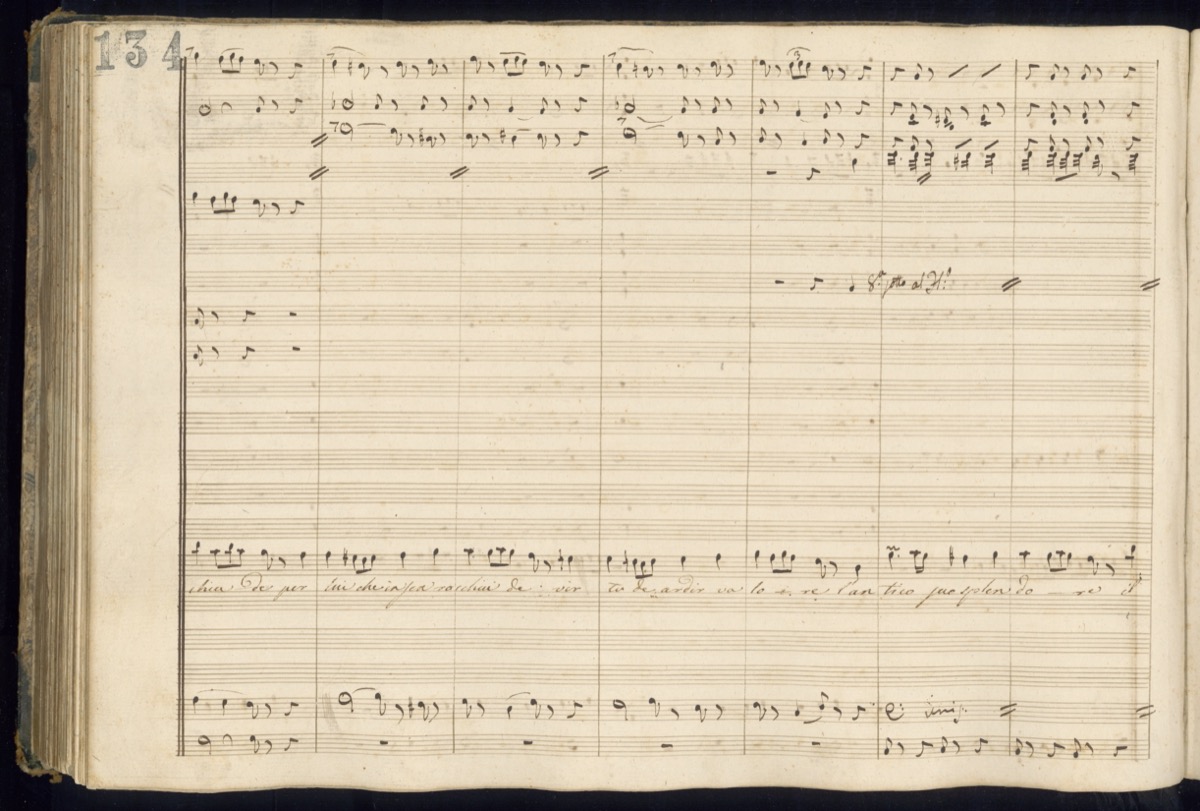 134
3
8.ª sotto al Fl.º
chiu des per lui che in sen racchiude : vir tu de ardir va lo - re l'an tico suo splen do - re il
unis.